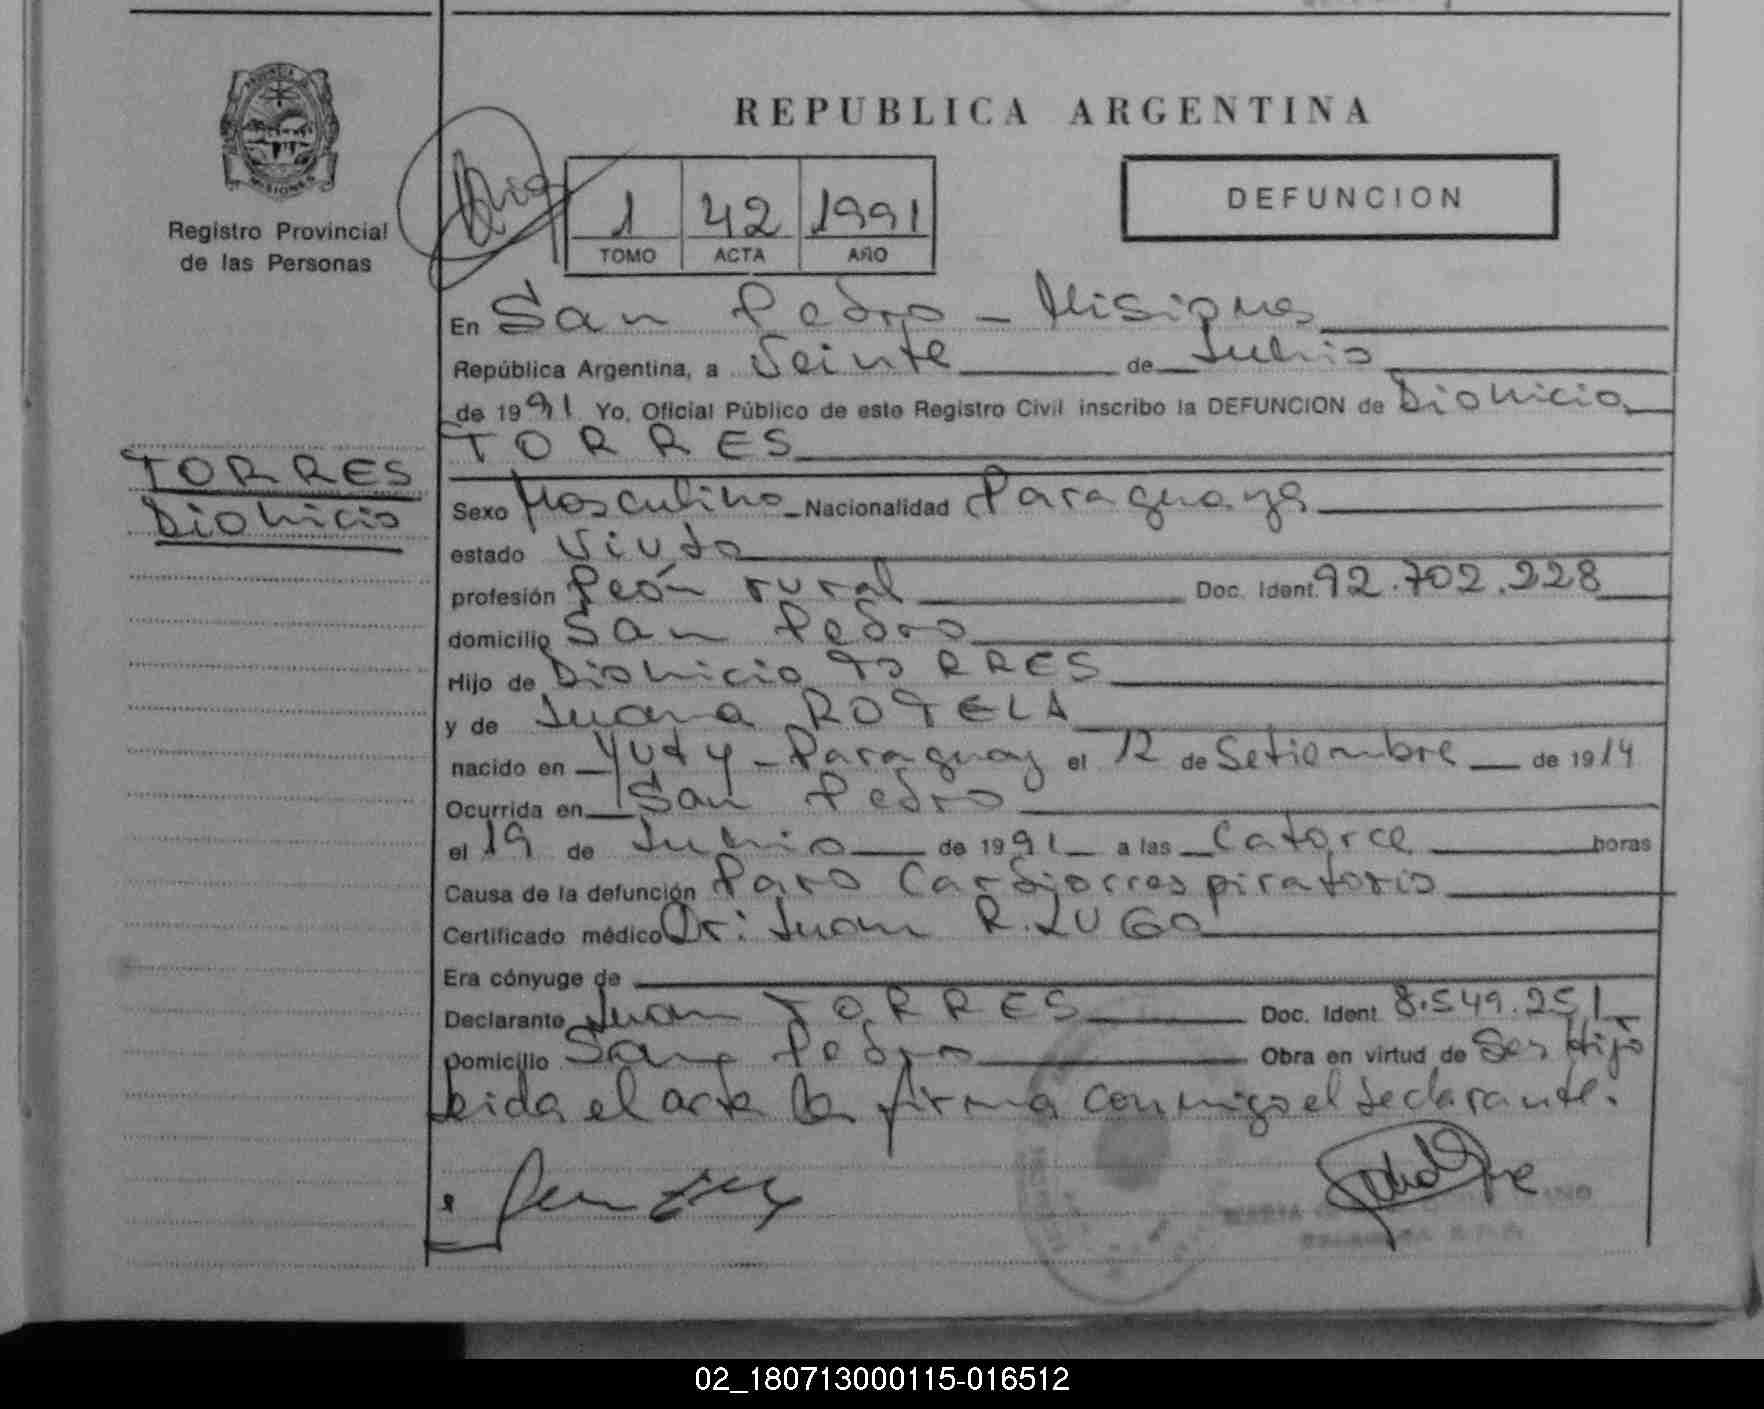 REPUBLICA ARGENTINA
PROVINCIA DE
MISIONES
Registro Provincial
de las Personas
1 42 1991
TOMO ACTA AÑO
DEFUNCION
En San Pedro - Misiones
República Argentina, a Veinte de Junio
de 1991 Yo, Oficial Público de este Registro Civil inscribo la DEFUNCION de Dionicio
TORRES
TORRES
Dionicio
Sexo Masculino Nacionalidad Paraguaya
estado Viudo
profesión Peón rural Doc. Ident. 92.702.228
domicilio San Pedro
Hijo de Dionicio TORRES
y de Juana ROTELA
nacido en Yuty - Paraguay el 12 de Setiembre de 1914
Ocurrida en San Pedro
el 19 de Junio de 1991 a las Catorce horas
Causa de la defunción Paro Cardiorrespiratorio
Certificado médico Dr: Juan R. LUGO
Era cónyuge de
Declarante Juan TORRES Doc. Ident. 8.549.251
Domicilio San Pedro Obra en virtud de Ser Hijo
Leida el acta la firma conmigo el declarante.
MARIA
02_180713000115-016512